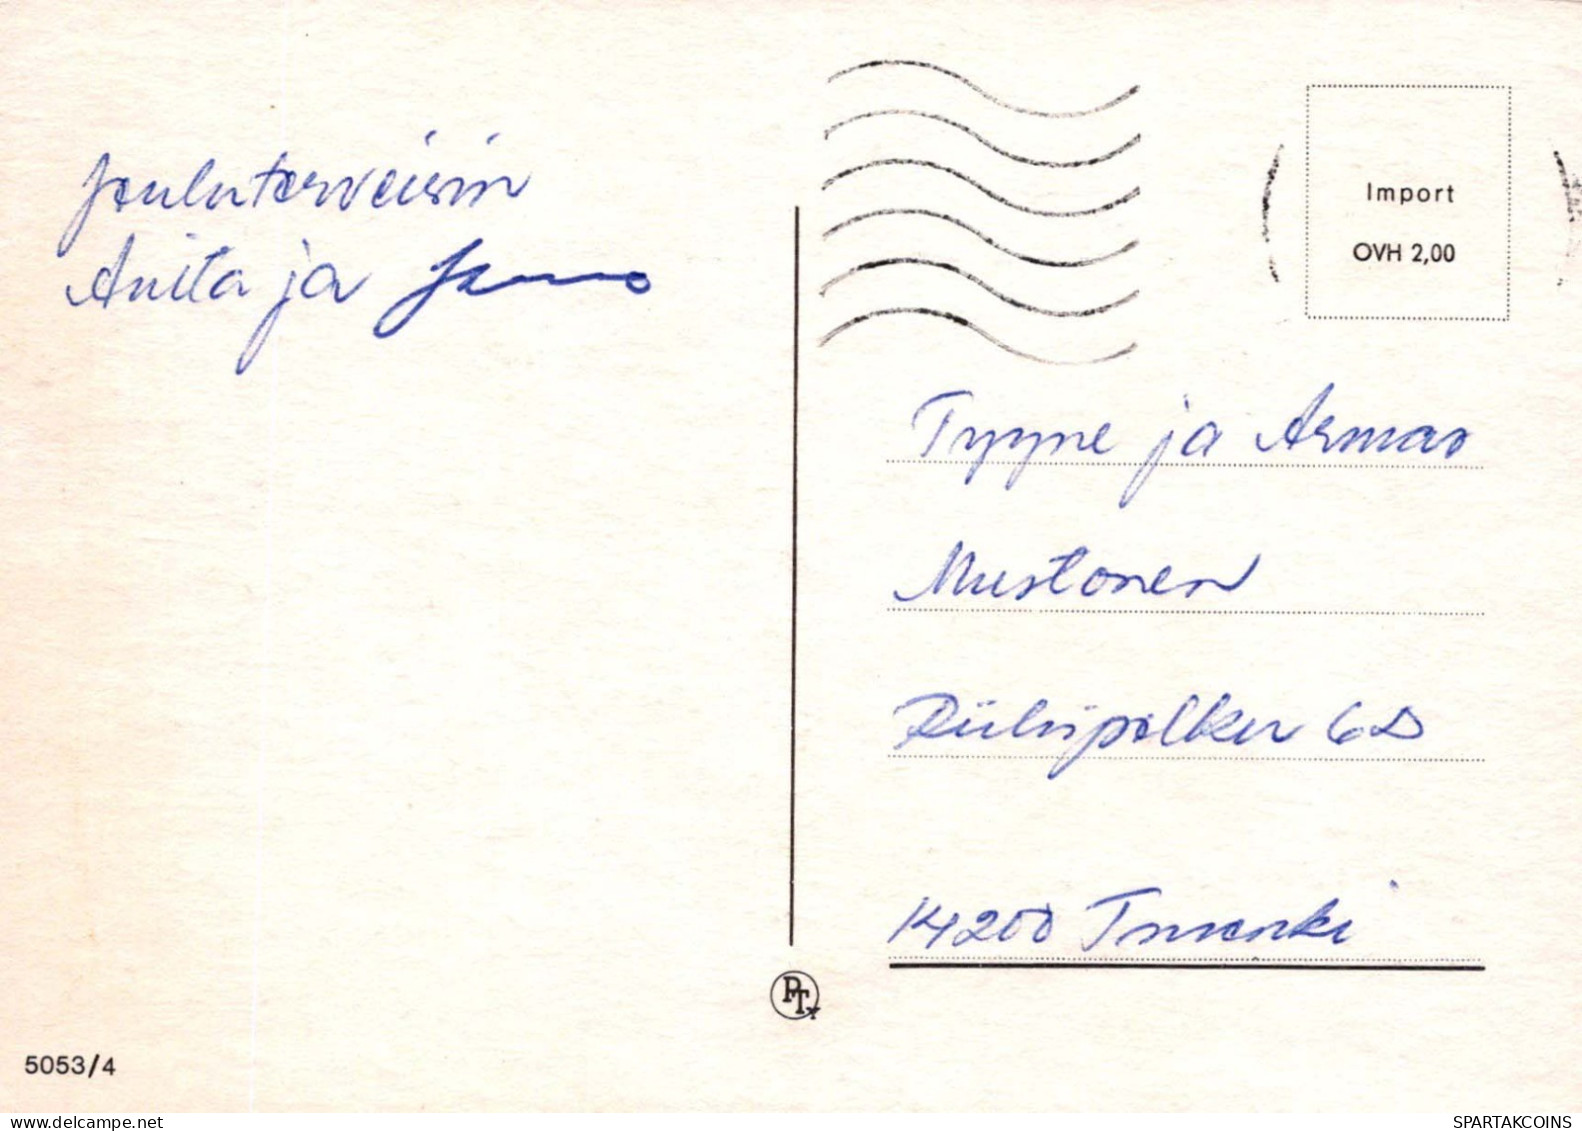 Jouluterveisin
Anita ja
Import
OVH 2,00
Tyyne ja Armas
Mustonen
Riihipolku 6D
14200 Turenki
PTy
5053/4
delcampe.net
SPARTAKCOINS